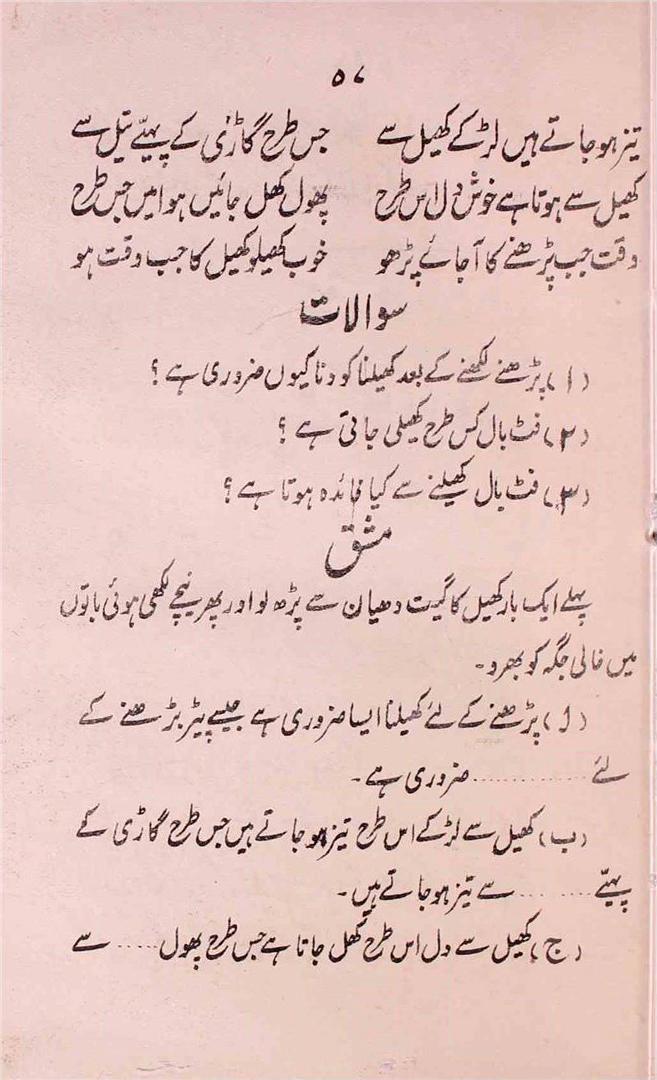 ۵۷
تیز ہو جاتے ہیں لڑکے کھیل سے جس طرح گاڑی کے پہیے تیل سے
کھیل سے ہوتا ہے خوش دل اس طرح پھول کھل جائیں ہوا میں جس طرح
وقت جب پڑھنے کا آجائے پڑھو خوب کھیلو کھیل کا جب وقت ہو
سوالات
(۱) پڑھنے لکھنے کے بعد کھیلنا کودنا کیوں ضروری ہے ؟
(۲) فٹ بال کس طرح کھیلی جاتی ہے ؟
(۳) فٹ بال کھیلنے سے کیا فائدہ ہوتا ہے ؟
مشق
پہلے ایک بار کھیل کا گیت دھیان سے پڑھ لو اور پھر نیچے لکھی ہوئی باتوں
میں خالی جگہ کو بھرو۔
(ا) پڑھنے کے لئے کھیلنا ایسا ضروری ہے جیسے پیڑ بڑھنے کے
لئے ............ ضروری ہے۔
(ب) کھیل سے لڑکے اس طرح تیز ہو جاتے ہیں جس طرح گاڑی کے
پہیے ......... سے تیز ہو جاتے ہیں۔
(ج) کھیل سے دل اس طرح کھل جاتا ہے جس طرح پھول ..... سے